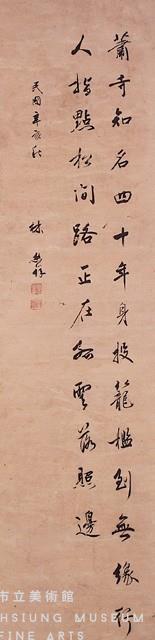 蕭寺知名四十年身投籠檻到無緣行
人指點松間路正在孤雲落照邊
民國辛
林
市立美術館
HSIUNG MUSEUM
FINE ARTS